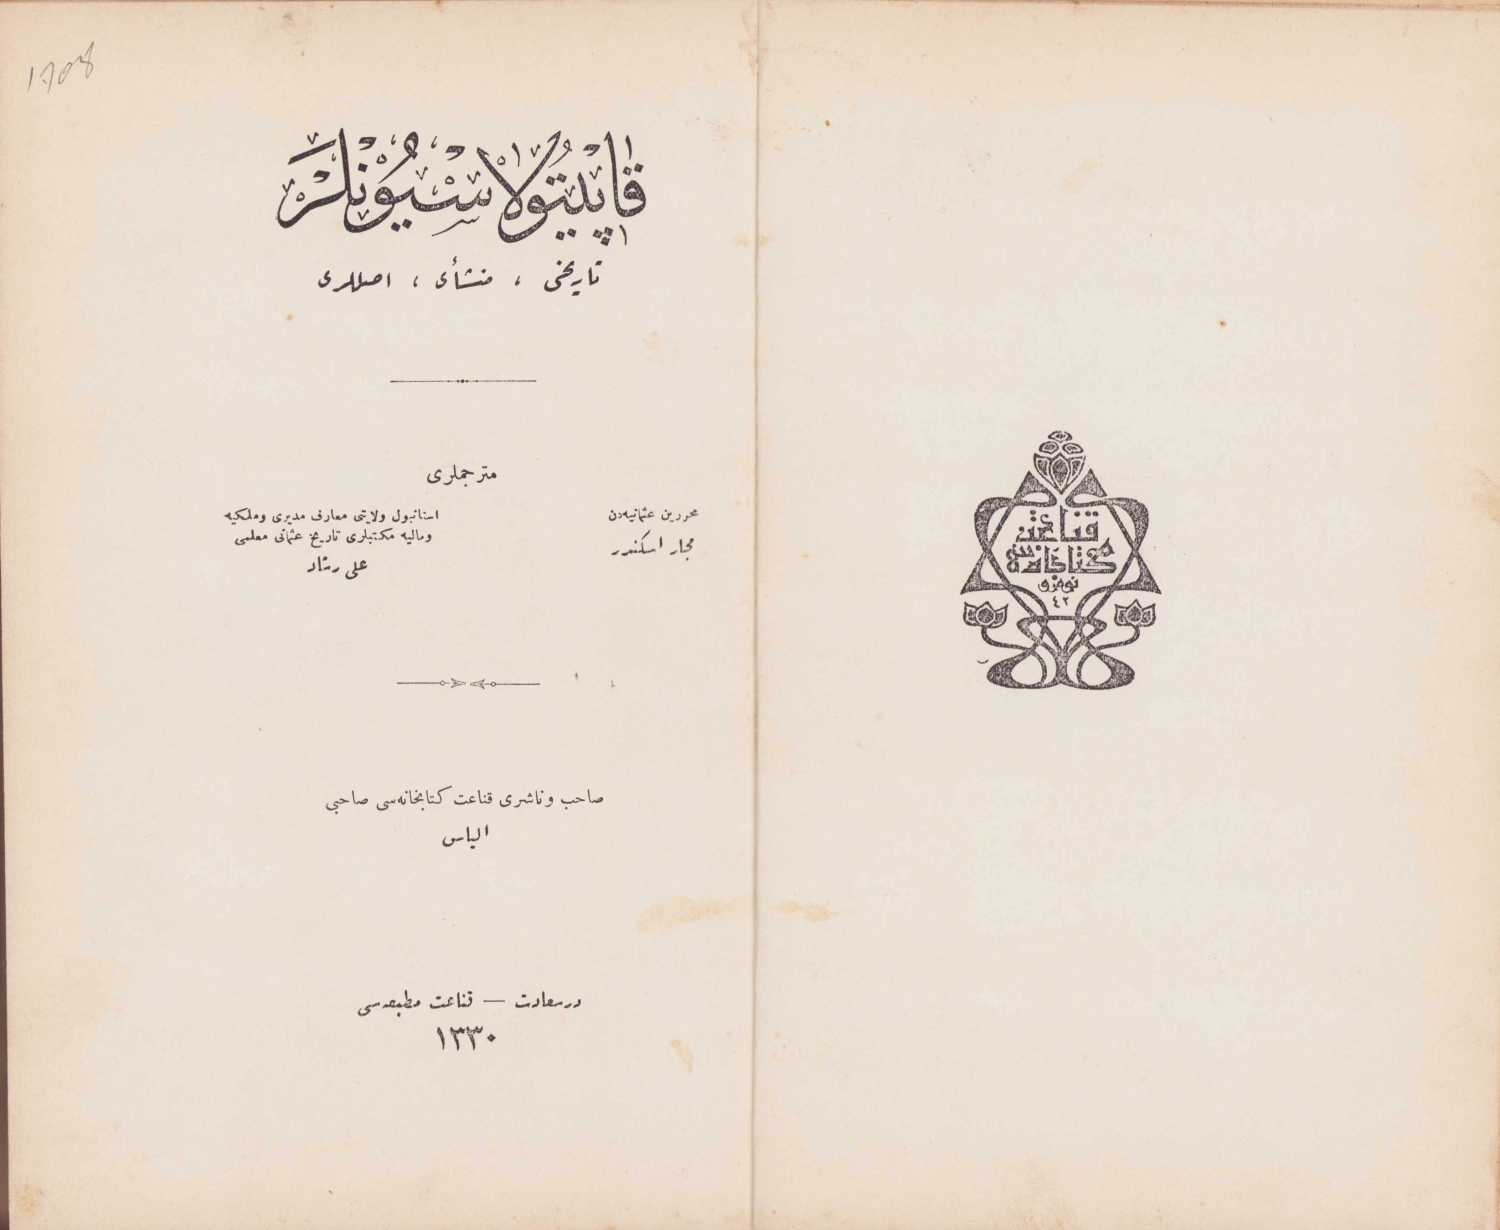 قناعت
كتابخانه‌سی
نومرو
٤٢
قاپیتولاسیونلر
تاریخی ، منشأی ، اصللری
مترجملری
محررین عثمانیه‌دن
مجار اسكندر
استانبول ولایتی معارف مدیری وملكیه
ومالیه مكتبلری تاریخ عثمانی معلمی
علی رشاد
صاحب وناشری قناعت كتابخانه‌سی صاحبی
الیاس
درسعادت — قناعت مطبعه‌سی
١٣٣٠